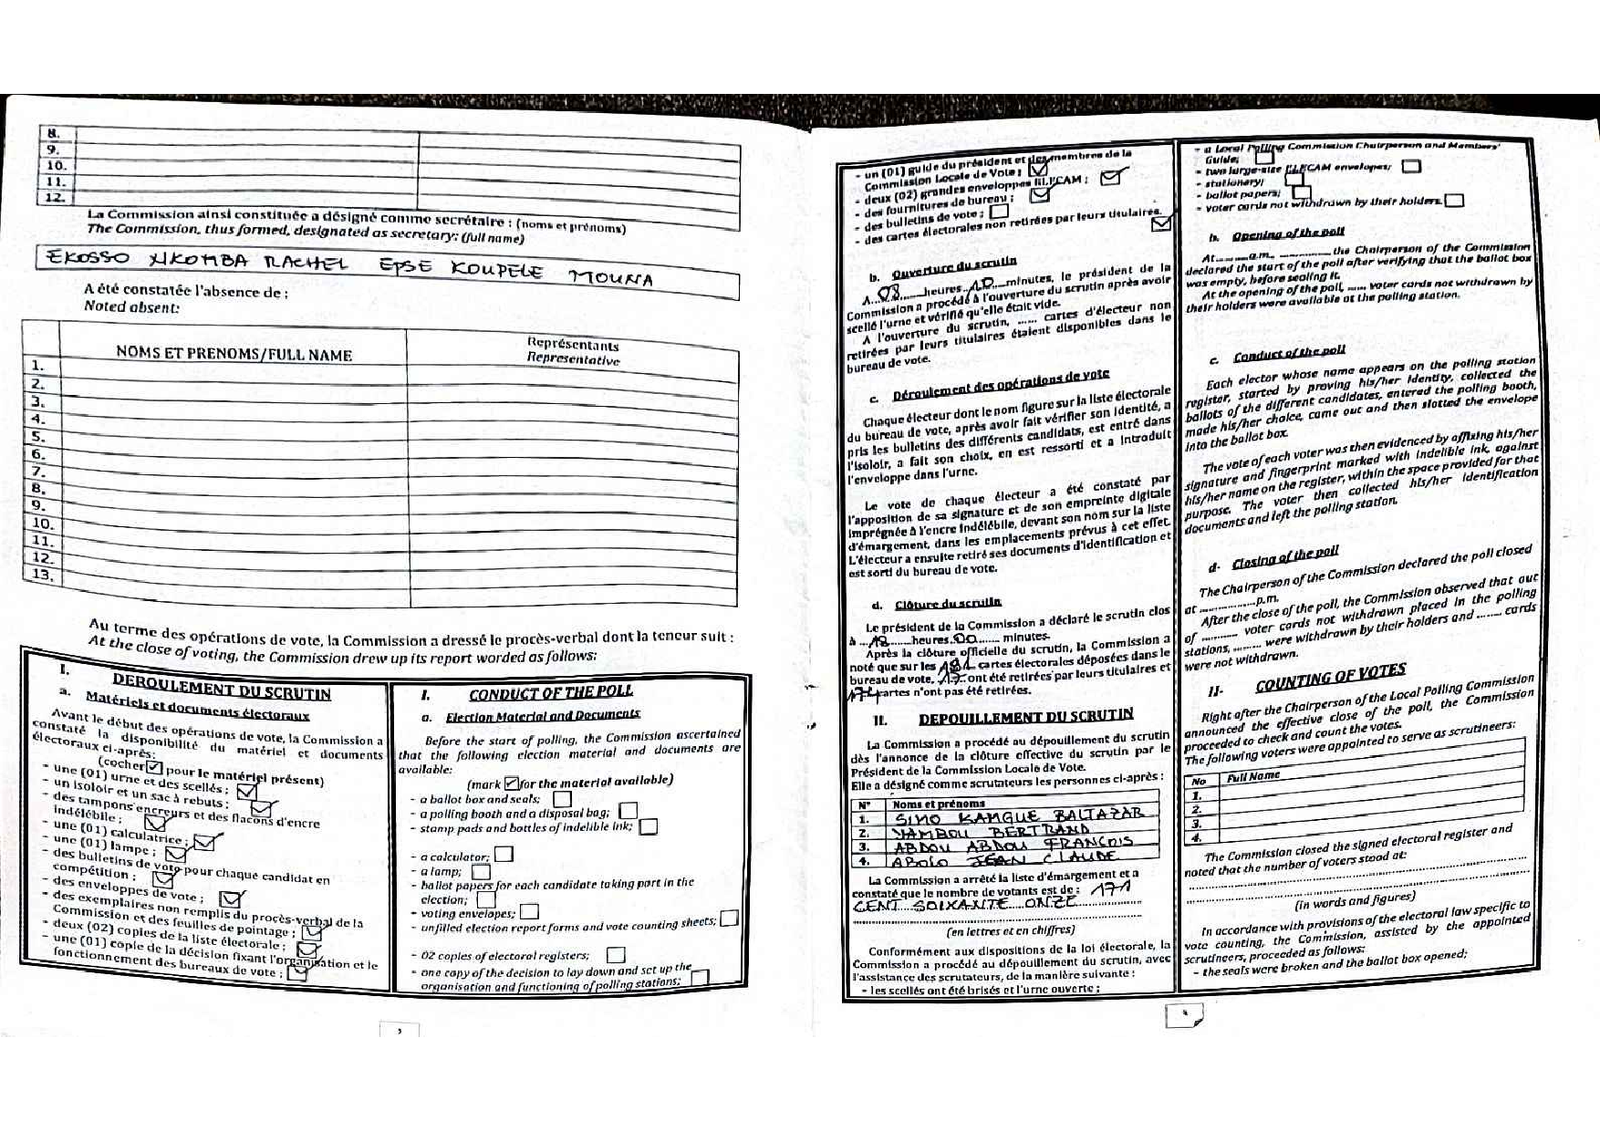 8.
9.
10.
11.
12.
La Commission ainsi constituée a désigné comme secrétaire : (noms et prénoms)
The Commission, thus formed, designated as secretary: (full name)
EKOSSO NKOMBA RACHEL EPSE KOUPELE MOUNA
A été constatée l'absence de :
Noted absent:
NOMS ET PRENOMS/FULL NAME
Représentants
Representative
1.
2.
3.
4.
5.
6.
7.
8.
9.
10.
11.
12.
13.
Au terme des opérations de vote, la Commission a dressé le procès-verbal dont la teneur suit :
At the close of voting, the Commission drew up its report worded as follows:
I. DEROULEMENT DU SCRUTIN
a. Matériels et documents électoraux
Avant le début des opérations de vote, la Commission a
constaté la disponibilité du matériel et documents
électoraux ci-après:
(cocher pour le matériel présent)
- une (01) urne et des scellés ;
- un isoloir et un sac à rebuts ;
- des tampons encreurs et des flacons d'encre
indélébile ;
- une (01) calculatrice ;
- une (01) lampe ;
- des bulletins de vote pour chaque candidat en
compétition ;
- des enveloppes de vote ;
- des exemplaires non remplis du procès-verbal de la
Commission et des feuilles de pointage ;
- deux (02) copies de la liste électorale ;
- une (01) copie de la décision fixant l'organisation et le
fonctionnement des bureaux de vote ;
I. CONDUCT OF THE POLL
a. Election Material and Documents
Before the start of polling, the Commission ascertained
that the following election material and documents are
available:
(mark for the material available)
- a ballot box and seals;
- a polling booth and a disposal bag;
- stamp pads and bottles of indelible ink;
- a calculator;
- a lamp;
- ballot papers for each candidate taking part in the
election;
- voting envelopes;
- unfilled election report forms and vote counting sheets;
- 02 copies of electoral registers;
- one copy of the decision to lay down and set up the
organisation and functioning of polling stations;
- un (01) guide du président et des membres de la
Commission Locale de Vote ;
- deux (02) grandes enveloppes ELECAM ;
- des fournitures de bureau ;
- des bulletins de vote ;
- des cartes électorales non retirées par leurs titulaires.
b. Ouverture du scrutin
A 08 heures 10 minutes, le président de la
Commission a procédé à l'ouverture du scrutin après avoir
scellé l'urne et vérifié qu'elle était vide.
A l'ouverture du scrutin, ...... cartes d'électeur non
retirées par leurs titulaires étaient disponibles dans le
bureau de vote.
c. Déroulement des opérations de vote
Chaque électeur dont le nom figure sur la liste électorale
du bureau de vote, après avoir fait vérifier son identité, a
pris les bulletins des différents candidats, est entré dans
l'isoloir, a fait son choix, en est ressorti et a introduit
l'enveloppe dans l'urne.
Le vote de chaque électeur a été constaté par
l'apposition de sa signature et de son empreinte digitale
imprégnée à l'encre indélébile, devant son nom sur la liste
d'émargement, dans les emplacements prévus à cet effet.
L'électeur a ensuite retiré ses documents d'identification et
est sorti du bureau de vote.
d. Clôture du scrutin
Le président de la Commission a déclaré le scrutin clos
à 18 heures 00 minutes.
Après la clôture officielle du scrutin, la Commission a
noté que sur les 181 cartes électorales déposées dans le
bureau de vote, 17 ont été retirées par leurs titulaires et
cartes n'ont pas été retirées.
II. DEPOUILLEMENT DU SCRUTIN
La Commission a procédé au dépouillement du scrutin
dès l'annonce de la clôture effective du scrutin par le
Président de la Commission Locale de Vote.
Elle a désigné comme scrutateurs les personnes ci-après :
N° Noms et prénoms
1. SIMO KAMGUE BALTAZAR
2. YAMBOU BERTRAND
3. ABDOU ABDOU FRANÇOIS
4. ABOLO JEAN CLAUDE
La Commission a arrêté la liste d'émargement et a
constaté que le nombre de votants est de : 171
CENT SOIXANTE ONZE
(en lettres et en chiffres)
Conformément aux dispositions de la loi électorale, la
Commission a procédé au dépouillement du scrutin, avec
l'assistance des scrutateurs, de la manière suivante :
- les scellés ont été brisés et l'urne ouverte ;
- a Local Polling Commission Chairperson and Members'
Guide;
- two large-size ELECAM envelopes;
- stationery;
- ballot papers;
- voter cards not withdrawn by their holders.
b. Opening of the poll
At.......a.m, .............., the Chairperson of the Commission
declared the start of the poll after verifying that the ballot box
was empty, before sealing it.
At the opening of the poll, ...... voter cards not withdrawn by
their holders were available at the polling station.
c. Conduct of the poll
Each elector whose name appears on the polling station
register, started by proving his/her identity, collected the
ballots of the different candidates, entered the polling booth,
made his/her choice, came out and then slotted the envelope
into the ballot box.
The vote of each voter was then evidenced by affixing his/her
signature and fingerprint marked with indelible ink, against
his/her name on the register, within the space provided for that
purpose. The voter then collected his/her identification
documents and left the polling station.
d- Closing of the poll
The Chairperson of the Commission declared the poll closed
at ................p.m.
After the close of the poll, the Commission observed that out
of .......... voter cards not withdrawn placed in the polling
stations, ......... were withdrawn by their holders and ........ cards
were not withdrawn.
II- COUNTING OF VOTES
Right after the Chairperson of the Local Polling Commission
announced the effective close of the poll, the Commission
proceeded to check and count the votes.
The following voters were appointed to serve as scrutineers:
No Full Name
1.
2.
3.
4.
The Commission closed the signed electoral register and
noted that the number of voters stood at:
(in words and figures)
In accordance with provisions of the electoral law specific to
vote counting, the Commission, assisted by the appointed
scrutineers, proceeded as follows:
- the seals were broken and the ballot box opened;